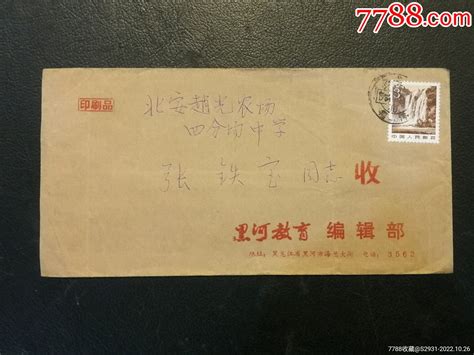 7788.com
印刷品
北安赵光农场
四分场中学
张铁宝同志 收
中国人民邮政
黑河教育 编辑部
地址:黑龙江省黑河市海兰大街 电话:3562
7788收藏@S2931-2022.10.26